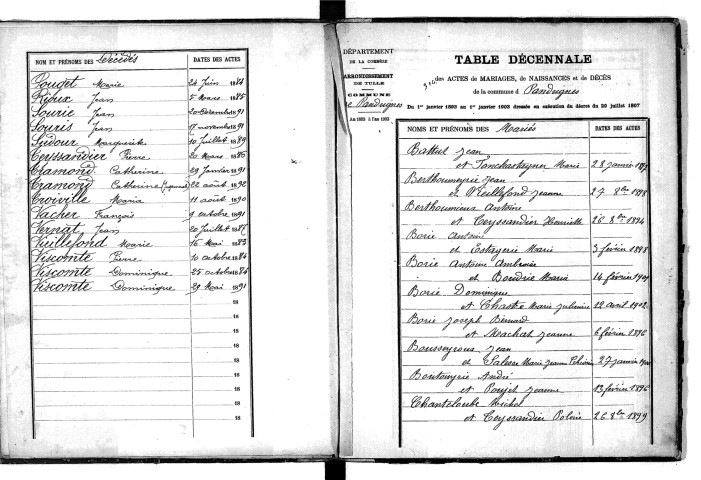 NOM ET PRÉNOMS DES Décédés DATES DES ACTES
Pouget Marie 24 Juin 1884
Rioux Jean 5 Mars 1885
Sourie Jean 20 Décembre 1891
Souris Jean 17 novembre 1891
Sudour Marguerite 10 Juillet 1889
Teyssandier Pierre 20 Mars 1886
Tramond Catherine 29 Janvier 1891
Tramond Catherine 22 août 1892
Troiville Maria 11 août 1890
Vacher François 9 octobre 1891
Vernat Jean 20 Juillet 18
Vieillefond Marie 16 Mai 1883
Viscomte Pierre 10 octobre 1884
Viscomte Dominique 25 octobre 1884
Viscomte Dominique 29 Mai 1891
18
18
18
18
18
18
18
18
18
DÉPARTEMENT
DE LA CORRÈZE
ARRONDISSEMENT
DE TULLE
COMMUNE
de Pandrignes
An 1893 à l'an 1903
TABLE DÉCENNALE
des ACTES de MARIAGES, de NAISSANCES et de DÉCÈS
de la commune d Pandrignes
Du 1er janvier 1893 au 1er janvier 1903 dressée en exécution du décret du 20 juillet 1807
NOMS ET PRÉNOMS DES Mariés DATES DES ACTES
Battut Jean
et Marie 28 janvier
Berthoumeyrie Jean
et Vieillefond Jeanne 27 8bre 1898
Berthoumieux Antoine
et Teyssandier Henriette 26 8bre 1894
Borie Antoine
et Estagerie Marie 3 février 1898
Borie Antoine Ambroise
et Boudrie Maria 14 février 1901
Borie Dominique
et Chastre Marie Julienne 22 avril 1902
Borie Joseph Bernard
et Machat Jeanne 6 février 1896
Bousseyroux Jean
et Salesse Marie Jeanne 27 janvier
Boutouyrie André
et Poujet Jeanne 13 février 1896
Chantaloube Michel
et Teyssandier Poline 26 8bre 1899